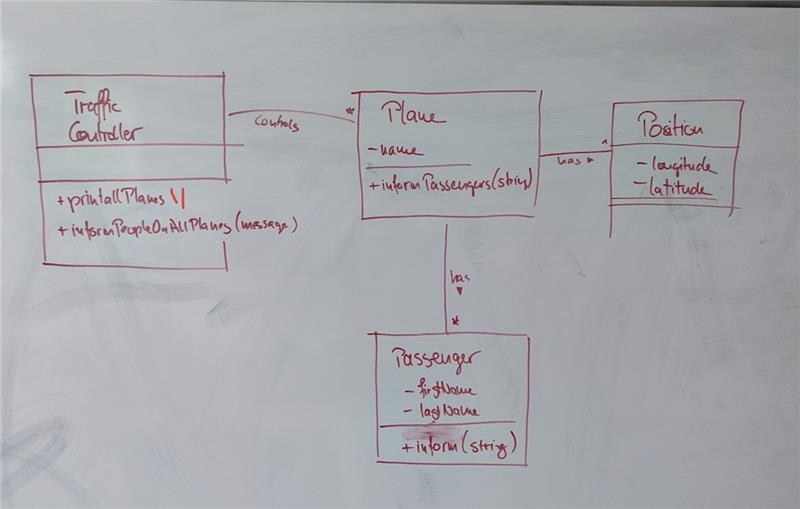 Traffic
Controller
+printallPlanes()
+informPeopleOnAllPlanes(message)
Controls
*
Plane
-name
+informPassengers(string)
has ▸
1
Position
-longitude
-latitude
has
▾
*
Passenger
- firstName
- lastName
+inform(string)